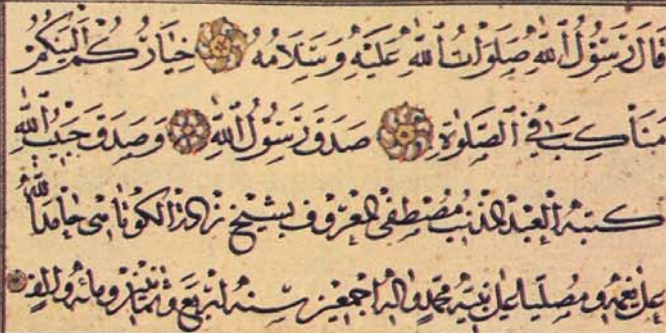 قَالَ رَسُولُ اللهِ صَلَوَاتُ اللهِ عَلَيْهِ وَسَلَامُهُ خِيَارُكُمْ أَلْيَنُكُمْ
مَنَاكِبَ فِي الصَّلٰوةِ صَدَقَ رَسُولُ اللهِ وَصَدَقَ حَبِيبُ اللهِ
كتبه العبد المذنب مصطفى المعروف بشيخ زاده الكوتاهى حامداً لله
على نعمه ومصليا على نبيه محمد واله اجمعين سنه اربع وثمانين ومائه والف